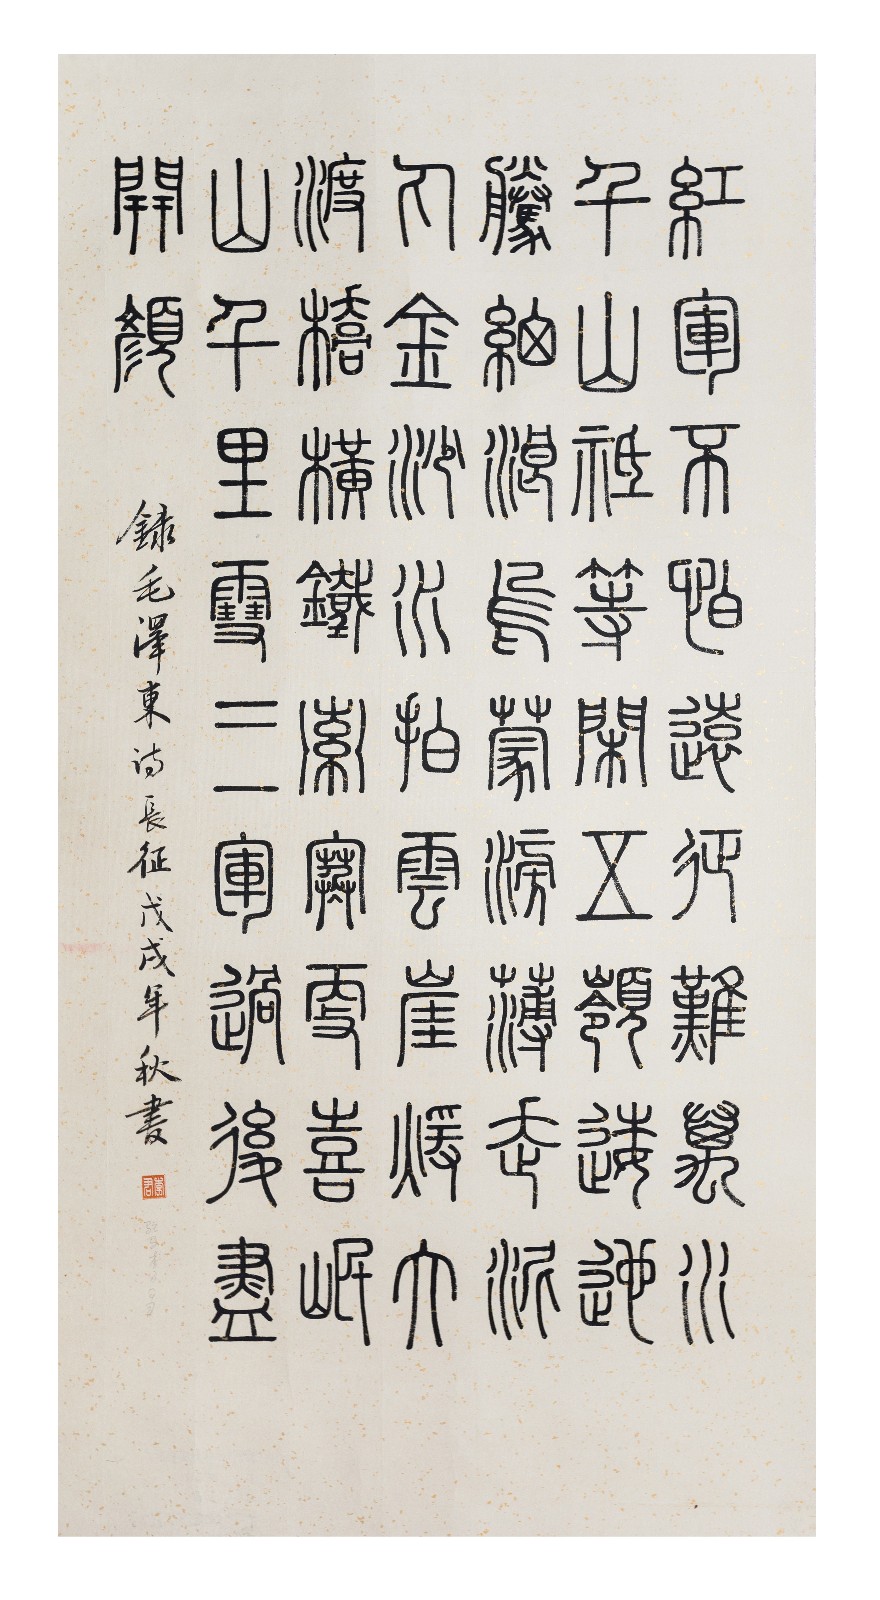 紅軍不怕遠征難萬水
千山祇等閑五嶺逶迤
騰細浪烏蒙滂薄走泥
丸金沙水拍雲崖煖大
渡橋橫鐵索寒更喜岷
山千里雪三軍過後盡
開顏
錄毛澤東诗長征戊戌年秋書